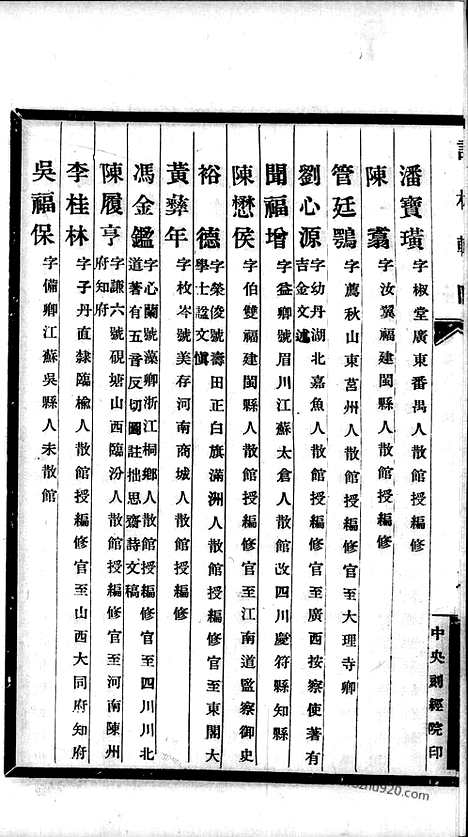 潘寶璜 字椒堂廣東番禺人散館授編修
陳翥 字汝翼福建閩縣人散館授編修
管廷鶚 字薦秋山東莒州人散館授編修官至大理寺卿
劉心源 字幼丹湖北嘉魚人散館授編修官至廣西按察使著有吉金文述
聞福增 字益卿號眉川江蘇太倉人散館改四川慶符縣知縣
陳懋侯 字伯雙福建閩縣人散館授編修官至江南道監察御史
裕德 字榮俊號壽田正白旗滿洲人散館授編修官至東閣大學士諡文慎
黃彝年 字枚岑號美存河南商城人散館授編修
馮金鑑 字心蘭號藻卿浙江桐鄉人散館授編修官至四川川北道著有五音反切圖註拙思齋詩文稿
陳履亨 字謙六號硯塘山西臨汾人散館授編修官至河南陳州府知府
李桂林 字子丹直隸臨榆人散館授編修官至山西大同府知府
吳福保 字備卿江蘇吳縣人未散館
中央刻經院印